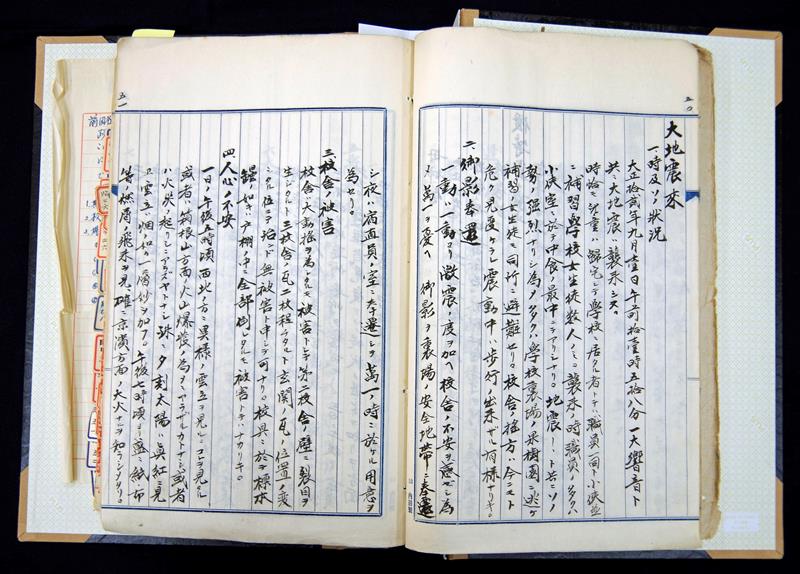 五〇
大地震来
一、時及ソノ状況
大正拾貳年九月壹日午前拾壹時五拾八分一大響音ト
共ニ大地震ハ襲来シヌ。
時恰モ児童ハ歸宅シテ學校ニ居タル者トテハ職員一同ト小使並
ニ補習學校女生徒数人ノミ。襲来ノ時職員ノ多クハ
小使室ニ於テ中食ノ最中ニテアリシナリ。地震ト共ニソノ
勢ノ強烈ナリシ為メ多クハ學校裏場ノ果樹園ニ逃ゲ
補習ノ女生徒モ同所ニ避難セリ。校舎ノ搖方ハ今ニモト
危ク見受ケシ震動中ハ歩行ノ出来ザル有様ナリキ。
二、御影奉遷
一動ハ一動ヨリ激震ノ度ヲ加ヘ校舎ノ不安ヲ感ゼシ為
メ萬一ヲ憂ヘ 御影ヲ裏場安全地帯ニ奉遷
五一
シ夜ハ宿直員ノ室ニ奉遷シ萬一ノ時ニ於ケル用意ヲ
為セリ。
三、校舎ノ被害
校舎ハ大動搖ヲ為シタルモ被害トシテ第二校舎ノ壁ニ裂目ヲ
生ジタルト三校舎ノ瓦二枚程
玄関ノ瓦ノ位置ノ変
ジタル位ニテ殆ンド無被害ト申シテ可ナリ。校具ニ於テ標本
類ノ如キハ戸棚ノ中ニ全部倒レタルモ被害トテハナカリキ。
四、人心ノ不安
一日ノ午後五時頃西北ノ方ニ異様ノ雲立ヲ見ル。コヲ見ル
或者ハ箱根山方面ノ火山爆發ノ為メニアラザルカト
或者
ハ火災ノ起リシニアラズヤト
殊ニ夕刻太陽ハ眞紅ニ見
ヱ雲立ハ烟ノ如ク一層妙ヲ加フ。午後七時頃ニ至ルモ紙布
等ノ燃屑ノ飛来ヲ見確ニ京濱方面ノ大火ナ
ヲ知ラシメタリ。